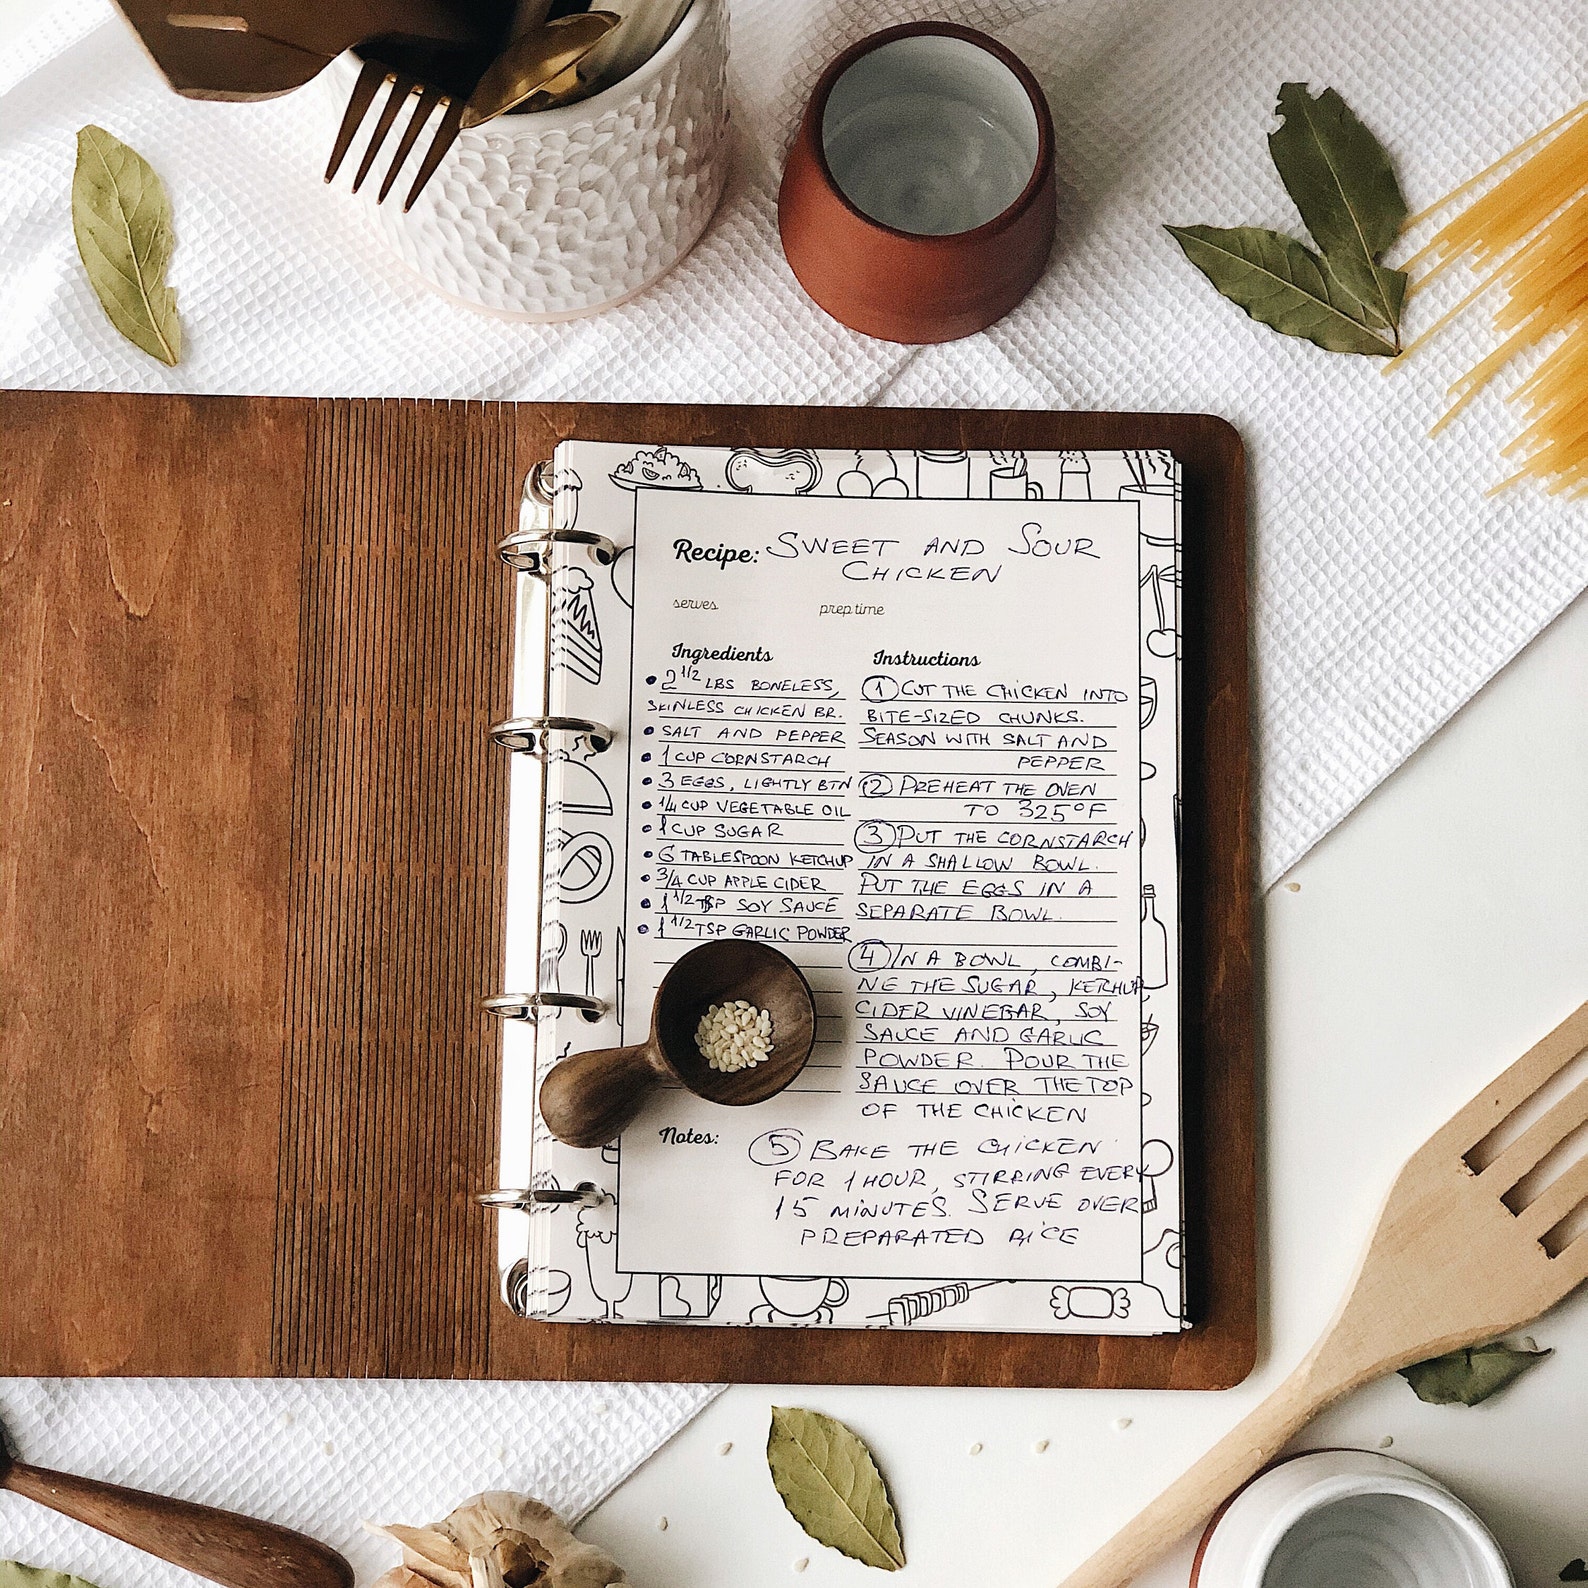 Recipe: SWEET AND SOUR
CHICKEN
serves
prep time
Ingredients
• 2 1/2 LBS BONELESS,
SKINLESS CHICKEN BR.
• SALT AND PEPPER
• 1 CUP CORNSTARCH
• 3 EGGS, LIGHTLY BTN
• 1/4 CUP VEGETABLE OIL
• 1 CUP SUGAR
• 6 TABLESPOON KETCHUP
• 3/4 CUP APPLE CIDER
• 1 1/2 TSP SOY SAUCE
• 1 1/2 TSP GARLIC POWDER
Instructions
1 CUT THE CHICKEN INTO
BITE-SIZED CHUNKS.
SEASON WITH SALT AND
PEPPER
2 PREHEAT THE OVEN
TO 325°F
3 PUT THE CORNSTARCH
IN A SHALLOW BOWL.
PUT THE EGGS IN A
SEPARATE BOWL.
4 IN A BOWL, COMBI-
NE THE SUGAR, KETCHUP
CIDER VINEGAR, SOY
SAUCE AND GARLIC
POWDER. POUR THE
SAUCE OVER THE TOP
OF THE CHICKEN
Notes:
5 BAKE THE CHICKEN
FOR 1 HOUR, STIRRING EVERY
15 MINUTES. SERVE OVER
PREPARATED RICE